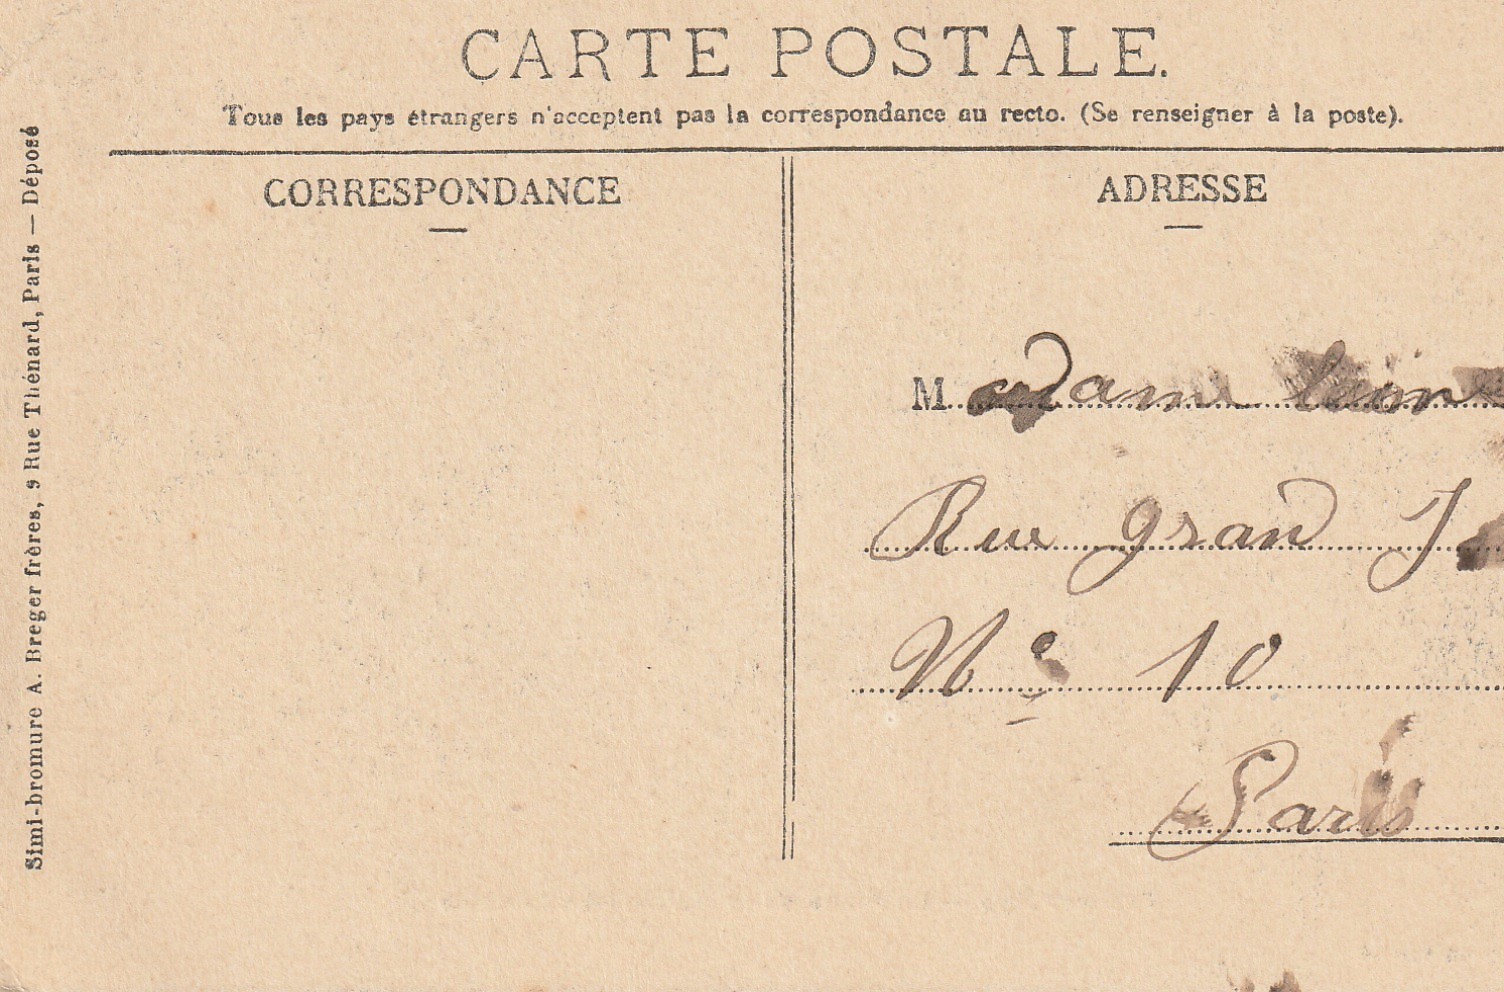 CARTE POSTALE.
Tous les pays étrangers n'acceptent pas la correspondance au recto. (Se renseigner à la poste).
CORRESPONDANCE
ADRESSE
Madame
Rue Gran
N° 10
Paris
Simi-bromure A. Breger frères, 9 Rue Thénard, Paris — Déposé